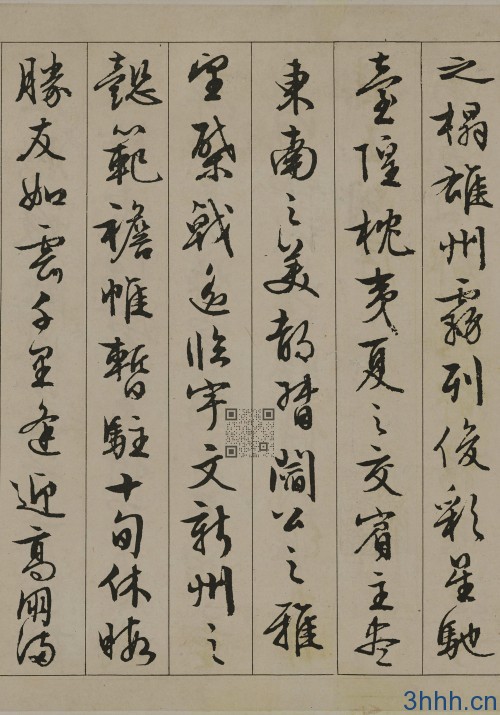 之榻雄州霧列俊彩星馳
臺隍枕夷夏之交賓主盡
東南之美都督閻公之雅
望棨戟遙臨宇文新州之
懿範襜帷暫駐十旬休暇
勝友如雲千里逢迎高朋滿
3hhh.cn